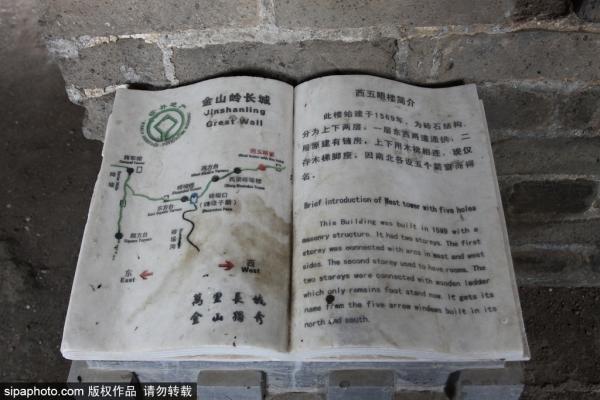 金山岭长城
Jinshanling
Great Wall
将军楼
西五眼楼
West tower with five holes
西方台
砖垛口
(砖垛子关)
东方台
四方台
东
East
西
West
萬里長城
金山獨秀
西五眼楼简介
此楼始建于1569年,为砖石结构,
分为上下两层,一层东西两道通拱,二
层原建有铺房,上下用木梯相连,现仅
存木梯脚座,因南北各设五个箭窗而得
名。
Brief introduction of West tower with five holes
This Building was built in 1569 with a
masonry structure. It had two storeys. The first
storey was onnnected with arcs in east and west
sides. The second storey used to have rooms. The
two storeys were connected with wooden ladder
which only remains foot stand now. It gets its
name from the five arrow windows built in its
north and south.
sipaphoto.com 版权作品 请勿转载